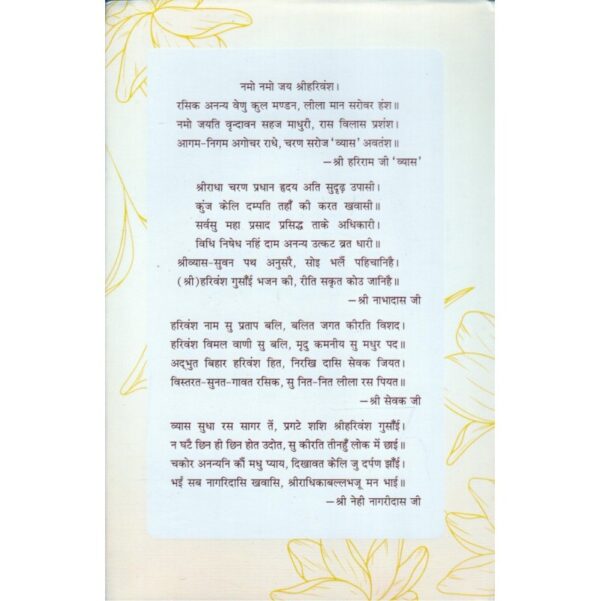 नमो नमो जय श्रीहरिवंश।
रसिक अनन्य वेणु कुल मण्डन, लीला मान सरोवर हंश॥
नमो जयति वृन्दावन सहज माधुरी, रास विलास प्रशंश।
आगम-निगम अगोचर राधे, चरण सरोज ‘व्यास’ अवतंश॥
–श्री हरिराम जी ‘व्यास’
श्रीराधा चरण प्रधान हृदय अति सुदृढ़ उपासी।
कुंज केलि दम्पति तहाँ की करत खवासी॥
सर्वसु महा प्रसाद प्रसिद्ध ताके अधिकारी।
विधि निषेध नहिं दाम अनन्य उत्कट व्रत धारी॥
श्रीव्यास-सुवन पथ अनुसरै, सोइ भलैं पहिचानिहै।
(श्री)हरिवंश गुसाँई भजन की, रीति सकृत कोउ जानिहै॥
–श्री नाभादास जी
हरिवंश नाम सु प्रताप बलि, बलित जगत कीरति विशद।
हरिवंश विमल वाणी सु बलि, मृदु कमनीय सु मधुर पद॥
अद्भुत बिहार हरिवंश हित, निरखि दासि सेवक जियत।
विस्तरत-सुनत-गावत रसिक, सु नित-नित लीला रस पियत॥
–श्री सेवक जी
व्यास सुधा रस सागर तें, प्रगटे शशि श्रीहरिवंश गुसाँई।
न घटै छिन ही छिन होत उदोत, सु कीरति तीनहुँ लोक में छाई॥
चकोर अनन्यनि कौं मधु प्याय, दिखावत केलि जु दर्पण झाँई।
भईं सब नागरिदासि खवासि, श्रीराधिकाबल्लभजू मन भाई॥
–श्री नेही नागरीदास जी